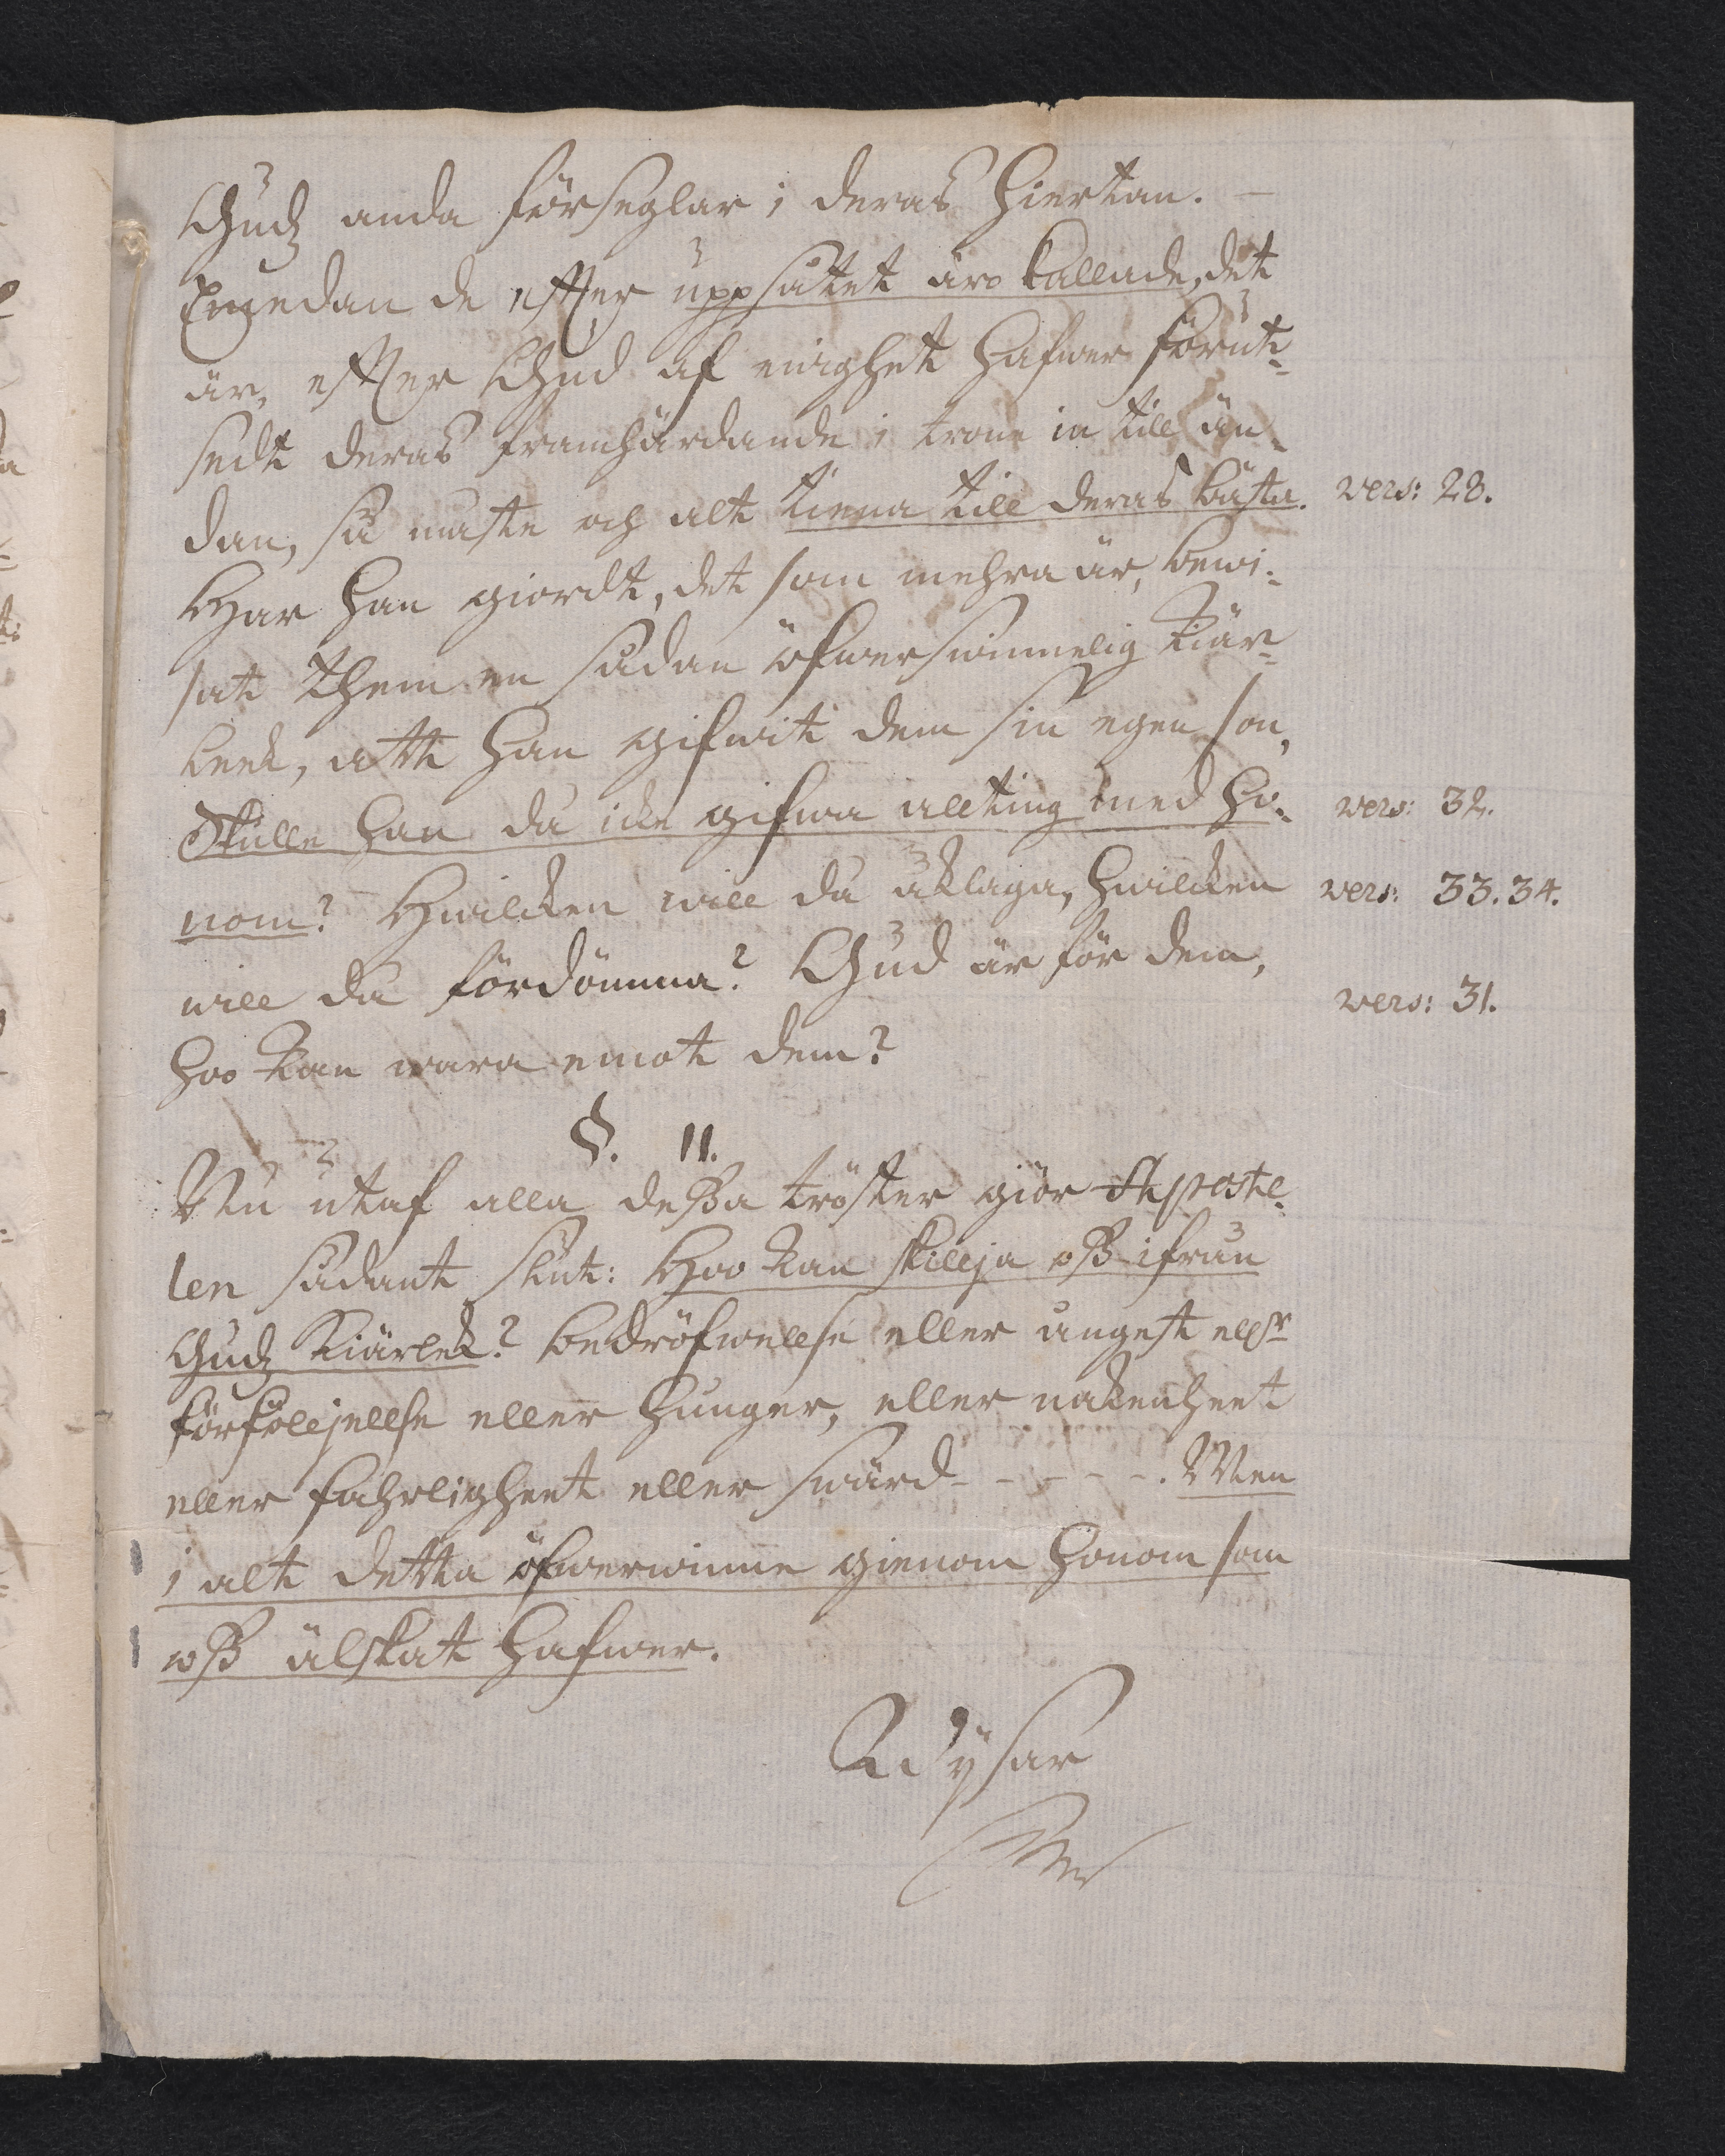 Gudz anda förseglar i deras hiertan. —
Emedan de efter uppsåtet äro kallade, det
är, efter Gud af ewighet hafwer förut-
sedt deras framhärdande i trone in till än-
dan, så måste och alt tiena till deras bästa. vers: 28.
Har han giordt, det som mehra är, bewi-
sat them en sådan öfwerswinnelig kiär-
leek, att han gifwit dem sin egen son,
Skulle han då icke gifwa allting med ho- vers: 32.
nom? Hwilcken will då åklaga, hwilcken vers: 33.34.
will då fördömma? Gud är för dem, vers: 31.
hoo kan wara emot dem?
§. 11.
Nu utaf alla deßa tröster giör Apostel-
len sådant slut: Hoo kan skillja oß ifrån
Gudz Kiärlek? bedröfwellse eller ångest ellr
förföljellse eller hunger, eller nakenheet
eller fahrligheet eller swärd - - - - -. Men
i alt detta öfwerwinne gienom honom som
oß älskat hafwer.